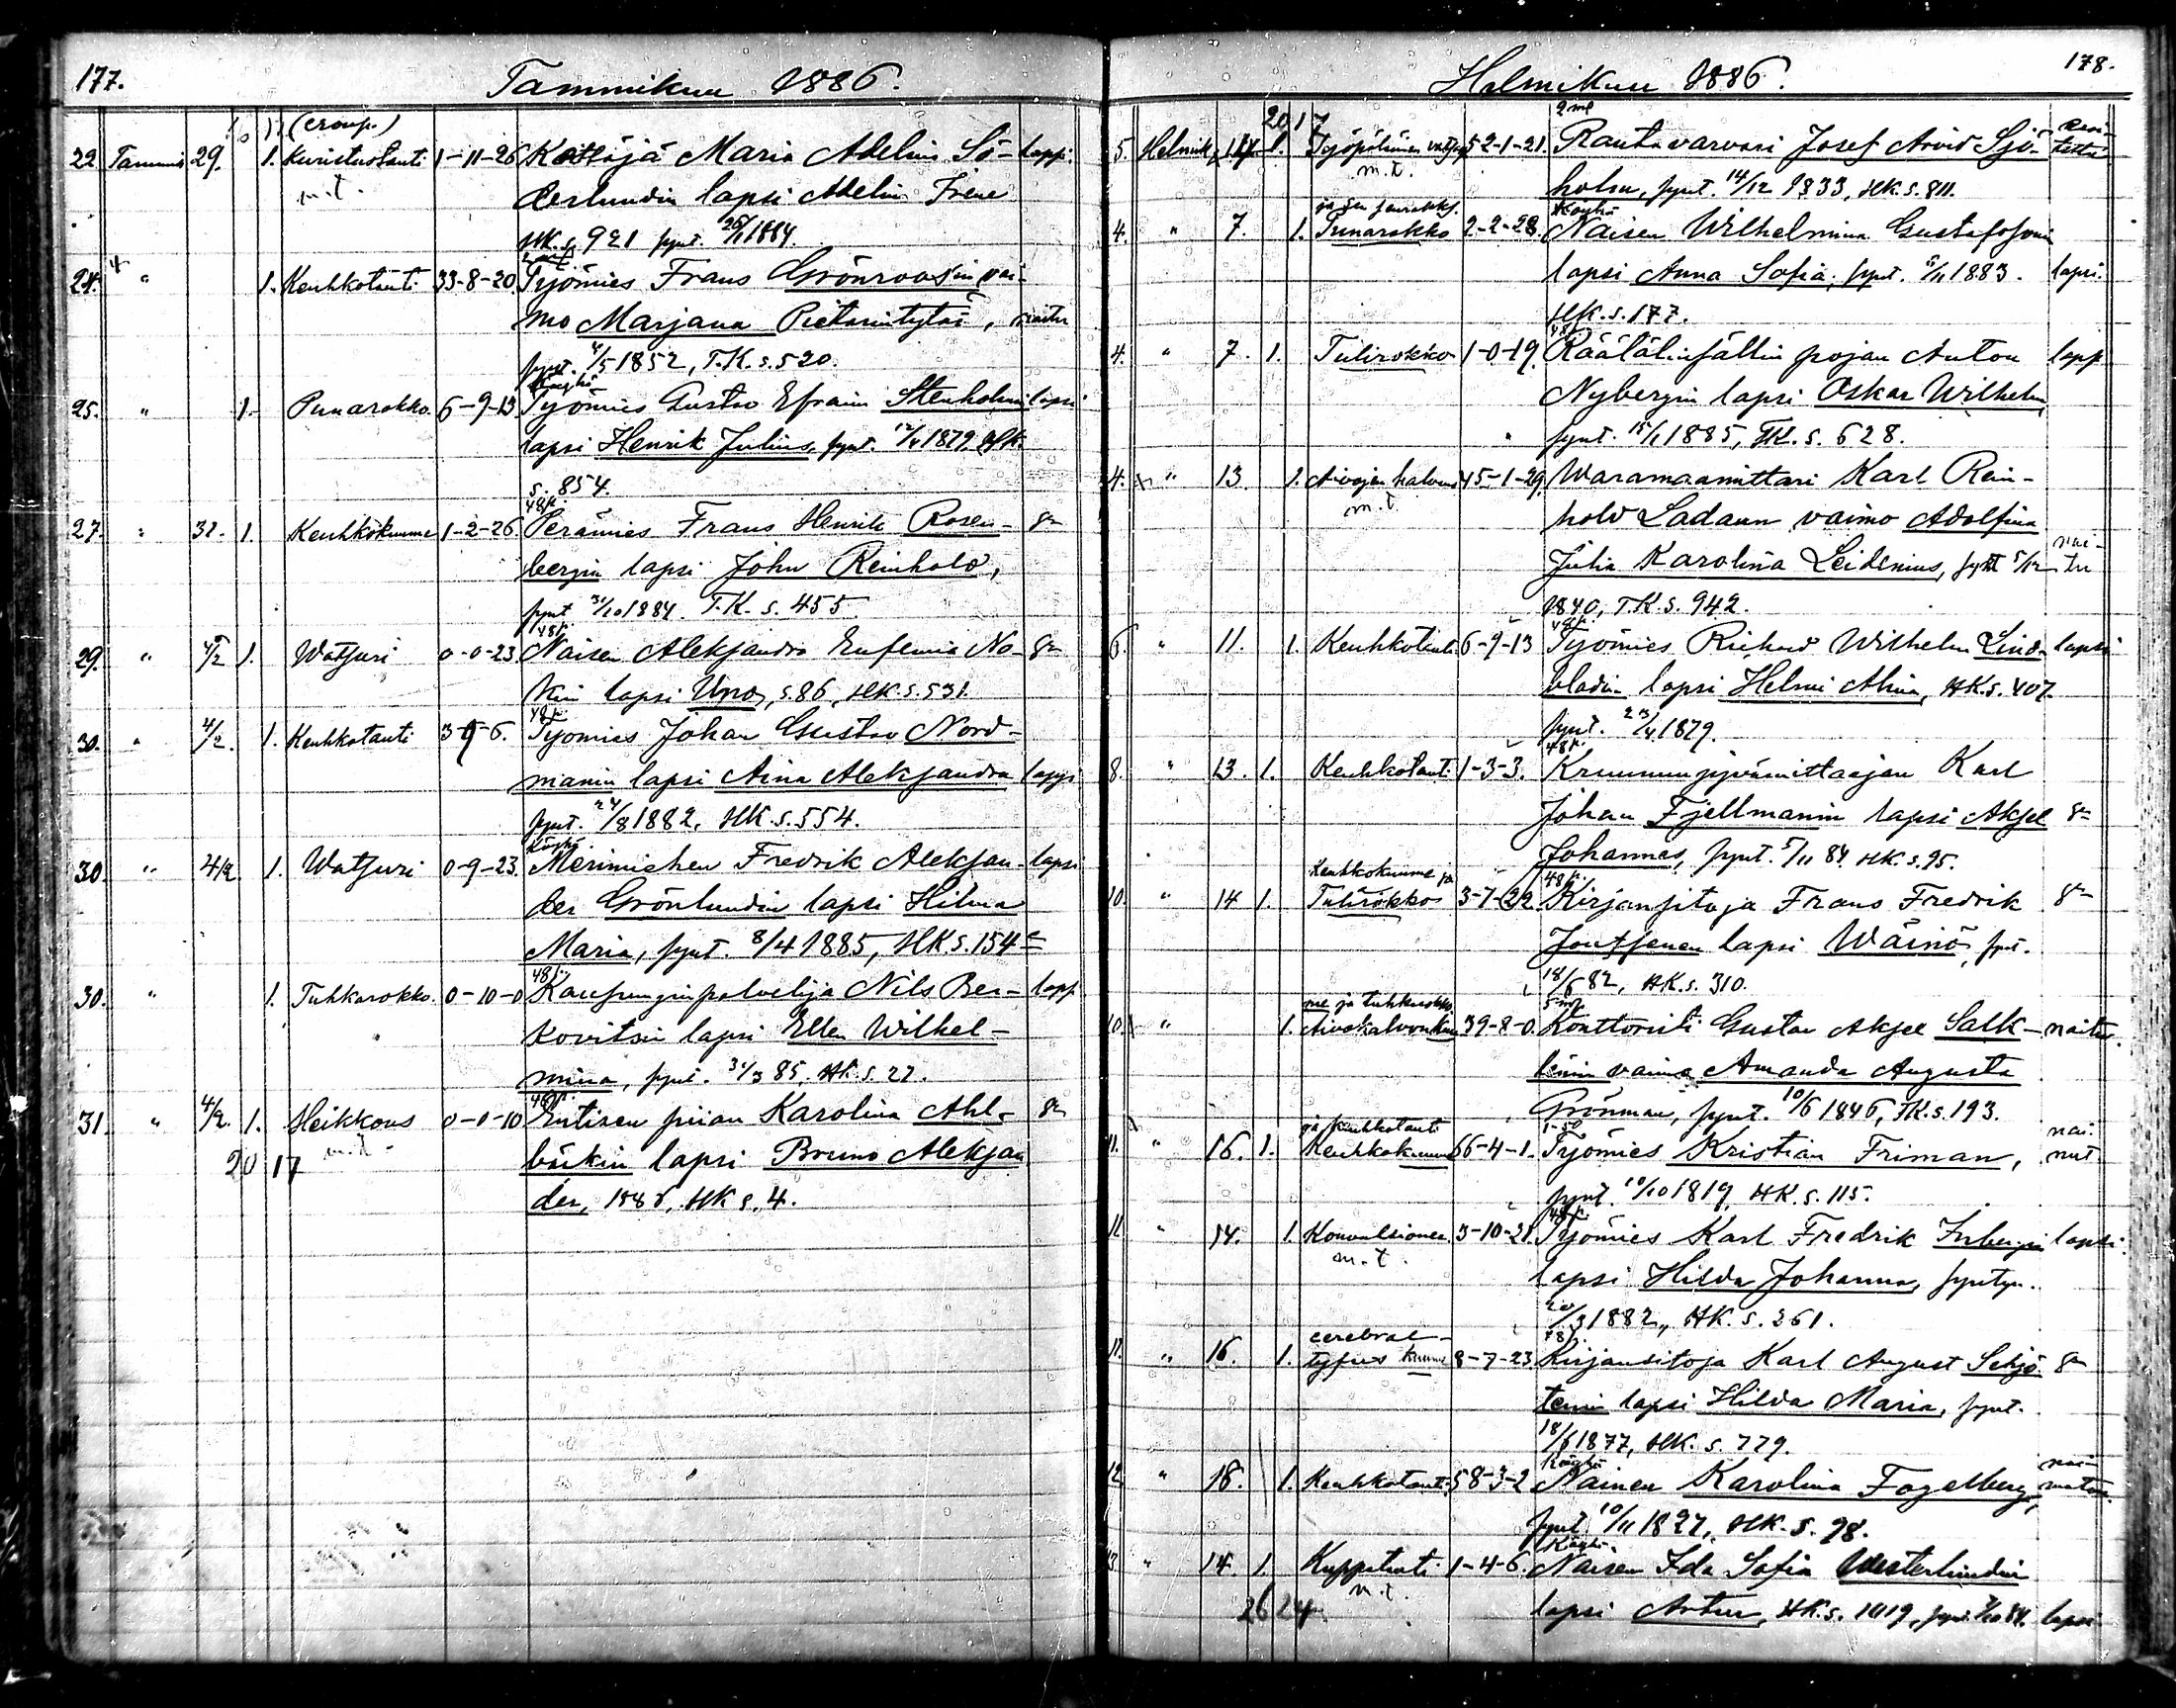 177.
Tammikuu 1886.
(croup.)
22. Tammik 29. 1. Kuristustauti 1-11-26 Maria Adelina Sö- lapsi
m.t. derlundin lapsi Adelin Irene
HK. s. 921 synt. 1884.
24. " 1. Keuhkotauti 33-8-20 Työmies Frans Grönroosin vai-
mo Marjana Pietarintytär, naitu
synt. 4/5 1852, T.K. s. 520.
Köyhä
25. " 1. Punarokko. 6-9-13 Työmies Gustav Efraim Stenholmin lapsi
lapsi Henrik Julius, synt. 12/4 1879, HK.
s. 854.
48 p.
27. " 31. 1. Keuhkokuume 1-2-26 Perämies Frans Henrik Rosen-
bergin lapsi John Reinhold,
synt. 31/10 1884. T.K. s. 455.
48 p.
29. " 4/2 1. Watsuri 0-0-23 Naisen Aleksandra Eufemia No-
kin lapsi Uno, s. 86, HK. s. 531.
48 p.
30. " 4/2. 1. Keuhkotauti 3-5-6. Työmies Johan Gustav Nord-
manin lapsi Aina Aleksandra lapsi
synt. 24/8 1882, HK. s. 554.
Köyhä
30. " 4/2. 1. Watsuri 0-9-23. Merimiehen Fredrik Aleksan- lapsi
der Grönlundin lapsi Hilma
Maria, synt. 8/4 1885, HK. s. 154
48 p.
30. " 1. Tuhkarokko. 0-10-0 Kaupungin palvelija Nils Ber- laps
kovitsin lapsi Ellen Wilhel-
mina, synt. 31/3 85, HK. s. 27.
48 p.
31. " 4/2. 1. Heikkous 0-0-10 Entisen piian Karolina Ahl-
m.t. bäckin lapsi Bruno Aleksan
20 17
der, 1886, HK s. 4.
178.
Helmikuu 1886.
20 17
5. Helmik. 14 1. 52-1-21. Rautavarvari Josef Arvid Sjö-
m.t. holm, synt. 14/12 1833, HK. s. 811.
Köyhä
4. " 7. 1. Punarokko 2-2-28. Naisen Wilhelmina Gustafssonin
lapsi Anna Sofia, synt. 1883. lapsi.
HK. s. 177.
48 p.
4. " 7. 1. Tulirokko 1-0-19. Räätälinsällin pojan Anton laps
Nybergin lapsi Oskar Wilhelm,
synt. 15/1 1885, TK. s. 628.
4. " 13. 1. Aivojen halvaus 45-1-29. Waramaamittari Karl Rein-
m.t. hold Ladaun vaimo Adolfina
Julia Karolina Leidenius, synt 5/12 nai-tu
1840, T.K. s. 942.
48 p.
6. " 11. 1. Keuhkotauti 6-9-13 Työmies Richard Wilhelm Lind- lapsi
bladin lapsi Helmi Alina, HK. s. 407.
synt. 23/4 1879.
48 p.
8. " 13. 1. Keuhkotauti. 1-3-3. Kruunun jyvämittaajan Karl
Johan Fjellmanin lapsi Aksel
Johannes, synt. 5/11 84 HK. s. 95.
Keuhkokuume ja 48 p.
10. " 14 1. Tulirokko 3-7-22. Kirjansitoja Frans Fredrik
Joutsenen lapsi Wäinö, synt.
18/6 82, HK. s. 310.
me ja tuhkarokko
10. " 1. Aivokalvonkuu 39-8-0. Konttoristi Gustav Aksel Salk- naitu.
lénin vaimo Amanda Augusta
Grönman, synt. 10/6 1846, TK. s. 193.
ja keuhkotauti
11. " 16. 1. Keuhkokuume 66-4-1. Työmies Kristian Friman, nai-nut
synt. 10/10 1819, HK. s. 115.
48 p.
11. " 14. 1. Konvulsioner 3-10-21. Työmies Karl Fredrik Inbergin lapsi.
m.t. lapsi Hilda Johanna, syntyn.
20/3 1882, HK. s. 261.
cerebral- 78 p.
11. " 16. 1. tyfus kuume 8-7-23 Kirjansitoja Karl August Sehjö-
tenin lapsi Hilda Maria, synt.
18/6 1877, HK. s. 779.
Köyhä
12. " 18. 1. Keuhkotauti. 58-3-2 Nainen Karolina Fogelberg, nai-maton.
synt. 10/11 1827, HK. s. 98.
Köyhä.
13 " 14. 1. Kuppatauti 1-4-6. Naisen Ida Sofia Westerlundin
m.t. lapsi Artur, HK. s. 1019, synt. 84. lapsi
26 24.